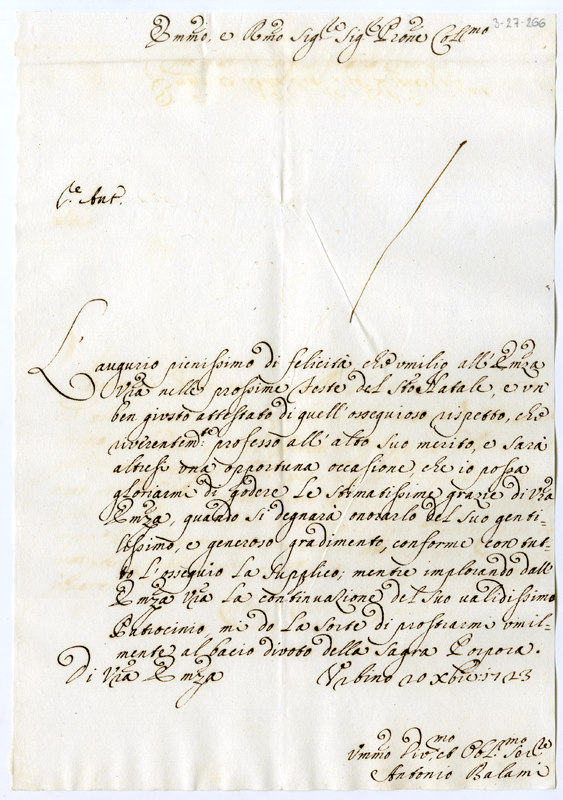 3-27-266
Emmo, e Rmo Sigre Sigr Prone Collmo
Cl. Ant.
L'augurio pienissimo di felicità che umilio all'Emza
Vra nelle prossime Feste del Sto Natale, e un
ben giusto attestato di quell'ossequioso rispetto, che
riverentemte professo all'alto suo merito, e sarà
altresì una opportuna occasione, che io possa
gloriarmi di godere le stimatissime grazie di Vra
Emza, quando si degnarà onorarlo del suo genti-
lissimo, e generoso gradimento, conforme con tut-
to l'ossequio la supplico; mentre implorando dall'
Emza Vra la continuazione del suo validissimo
Patrocinio, mi do la sorte di prostrarmi umil-
mente al bacio divoto della Sagra Porpora.
Di Vra Emza Urbino 20 Xbre 1723
Ummo Divmo et Obblmo Serre
Antonio Balami